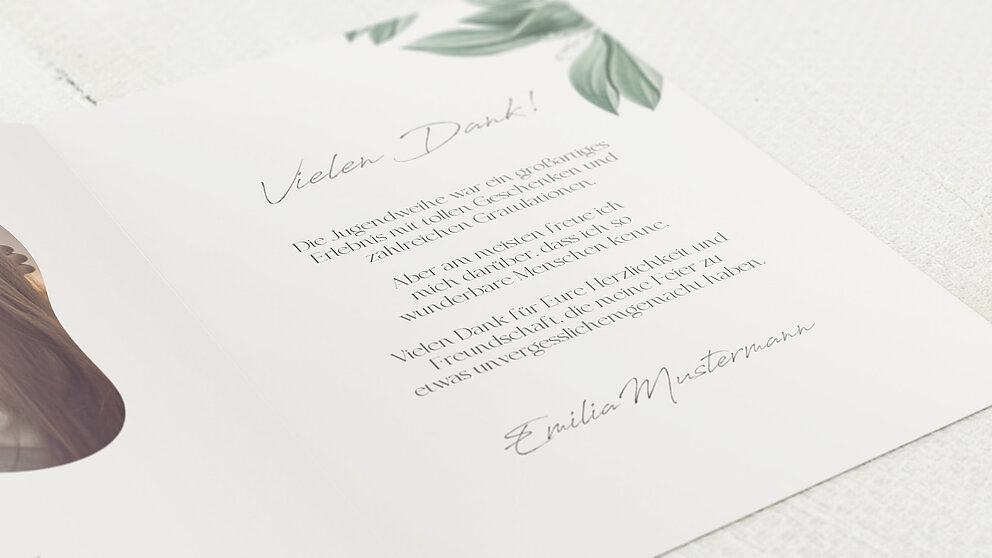 Vielen Dank!
Die Jugendweihe war ein großartiges
Erlebnis mit tollen Geschenken und
zahlreichen Gratulationen.
Aber am meisten freue ich
mich darüber, dass ich so
wunderbare Menschen kenne.
Vielen Dank für Eure Herzlichkeit und
Freundschaft, die meine Feier zu
etwas unvergesslichemgemacht haben.
Emilia Mustermann